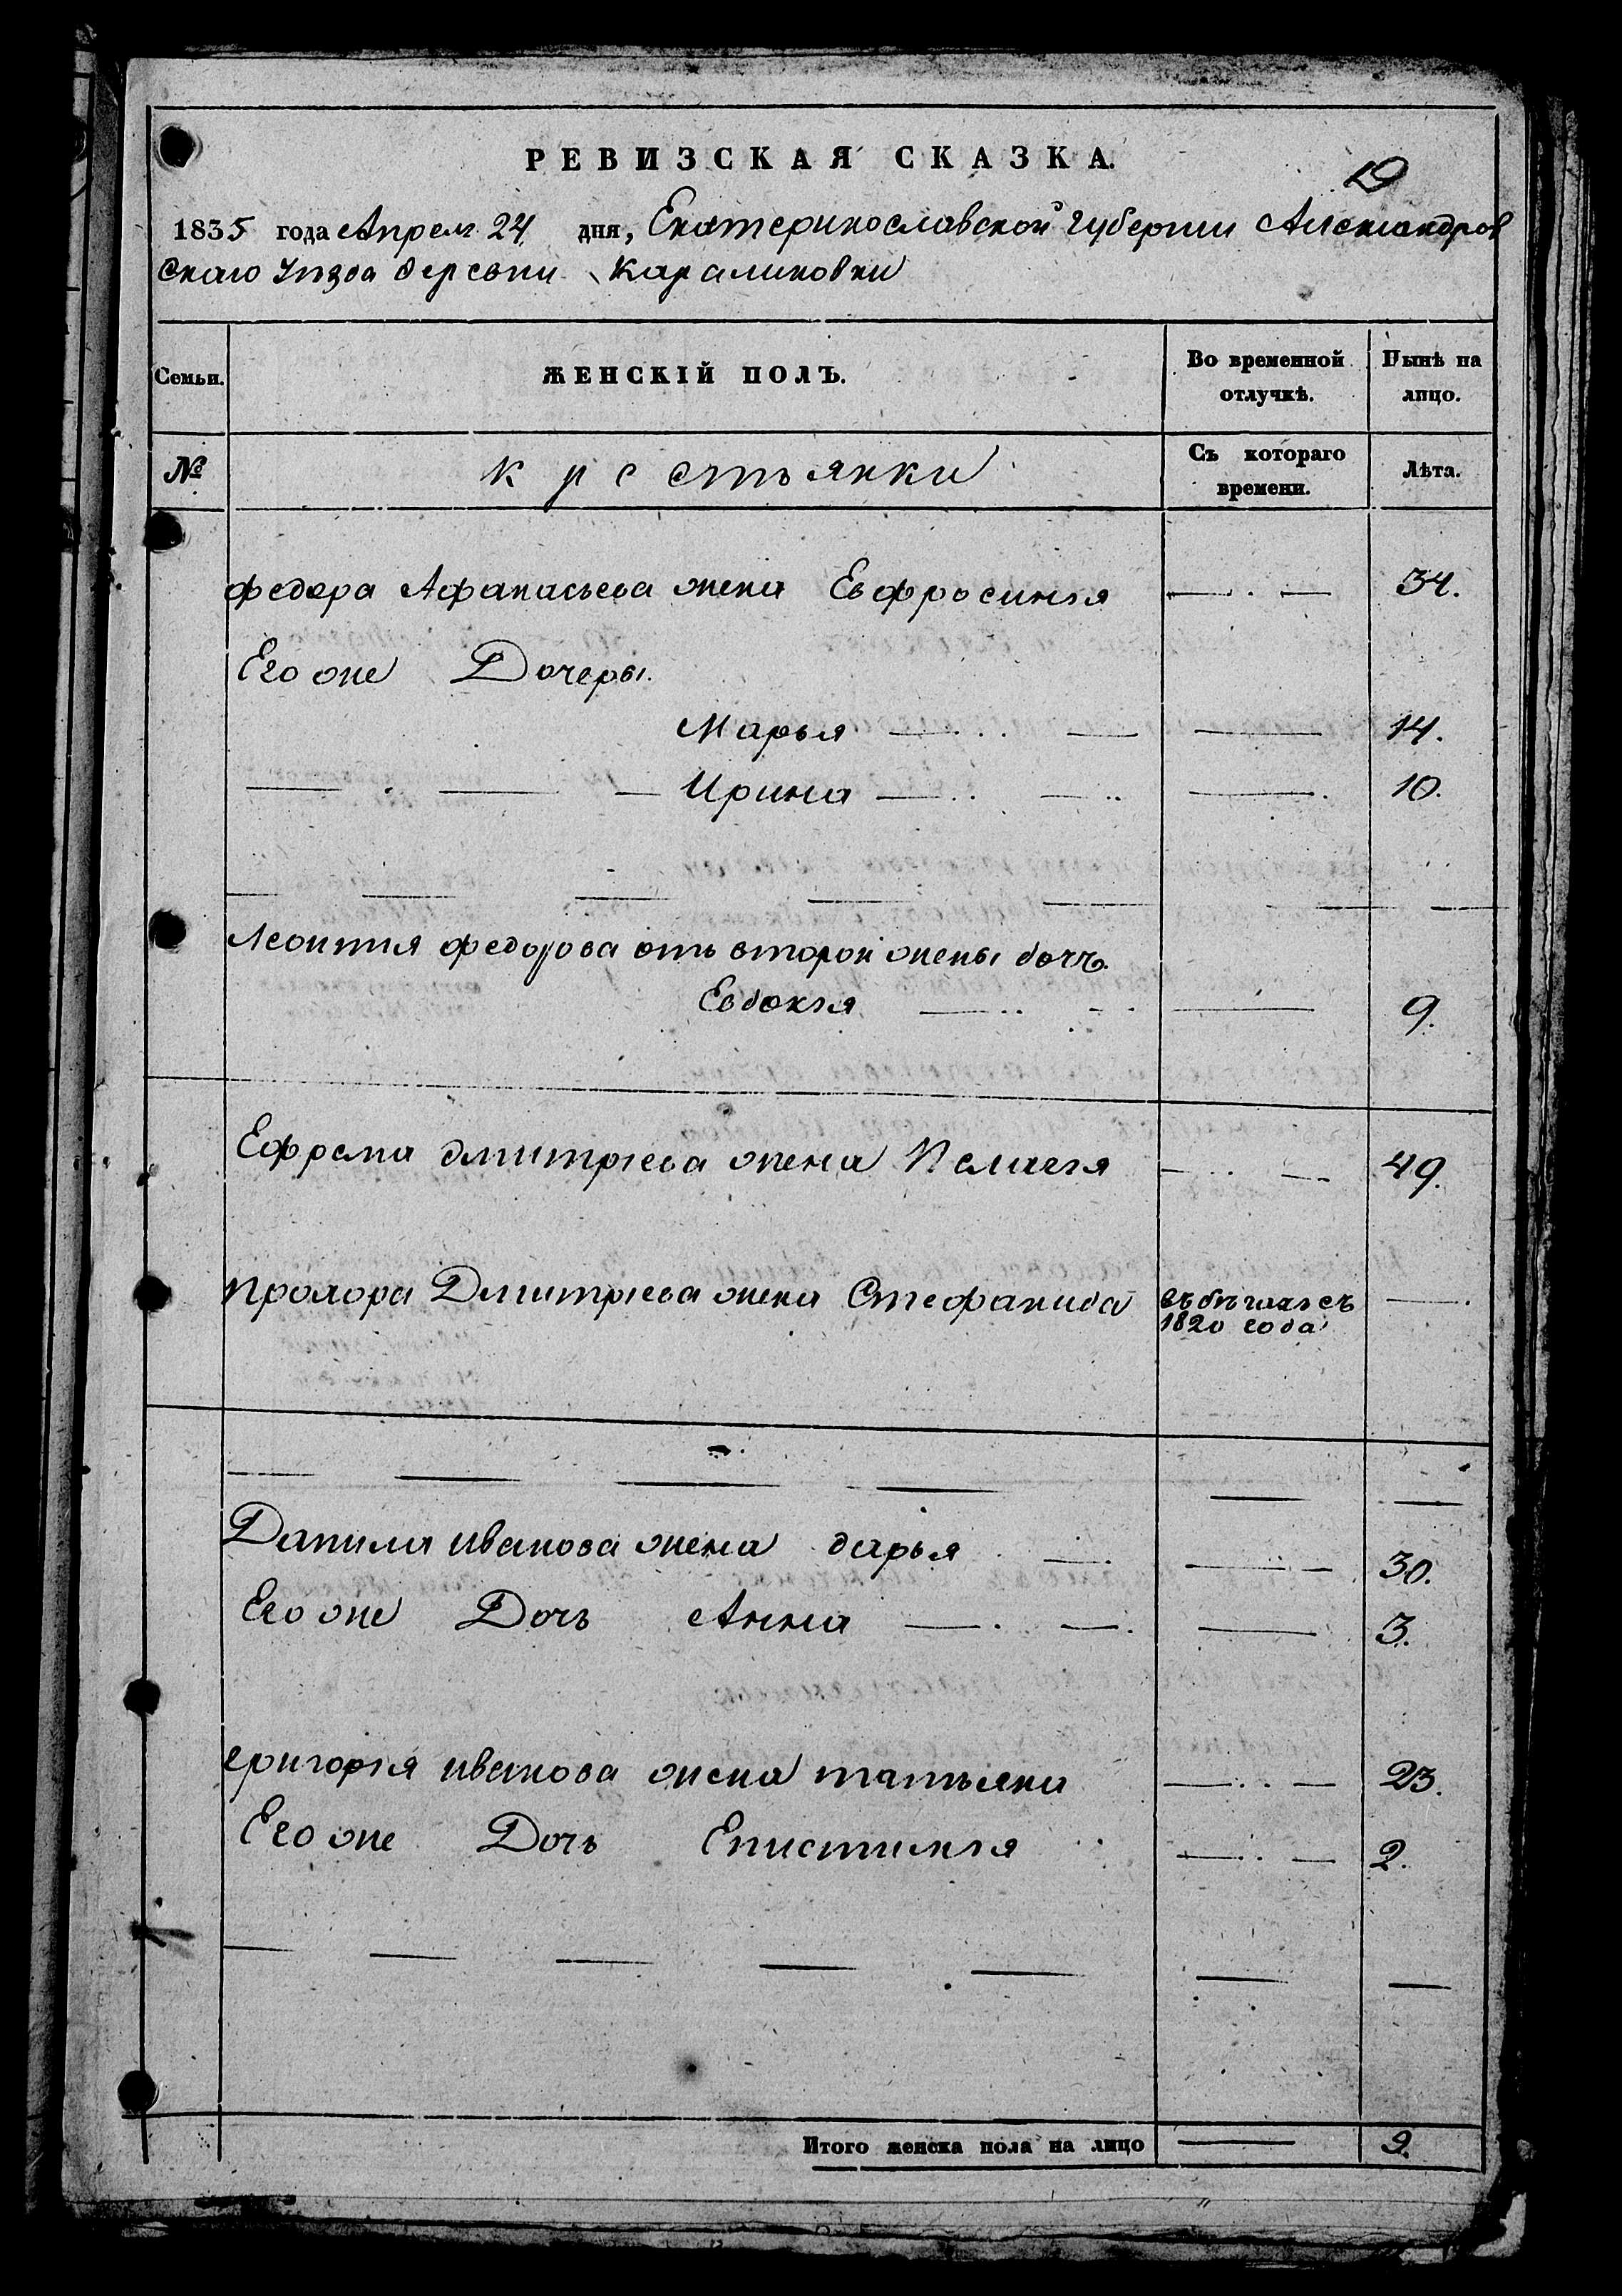 РЕВИЗСКАЯ СКАЗКА.
19
1835 года Апреля 24 дня, Екатеринославской губернии Александров
скаго уѣзда деревни Каралиновки
Семьи. ЖЕНСКІЙ ПОЛЪ. Во временной отлучкѣ. Нынѣ на лицо.
№ крестьянки Съ котораго времени. Лѣта.
Федора Афанасьева жена Евфросинія — . — 34.
Его же Дочеры.
Марья — . . — — 14.
— . — — Ирина — . . — . . — . 10.
— — — — — — — —
Леонтия федорова отъ второй жены дочь.
Евдокія — . . - . — 9.
Ефрема дмитріева жена Пелагія — . . — 49.
Прохора Дмитріева жена Стефанида въ бѣгахъ съ — .
1820 года
— — — — — —
Данила иванова жена дарья — . — — 30.
Его же Дочь Анна — . — . — 3.
григорія иванова жена татьяна — . . — 23.
Его же Дочь Епистимія . . — . . — 2.
— — — — — — —
Итого женска пола на лицо — 9.